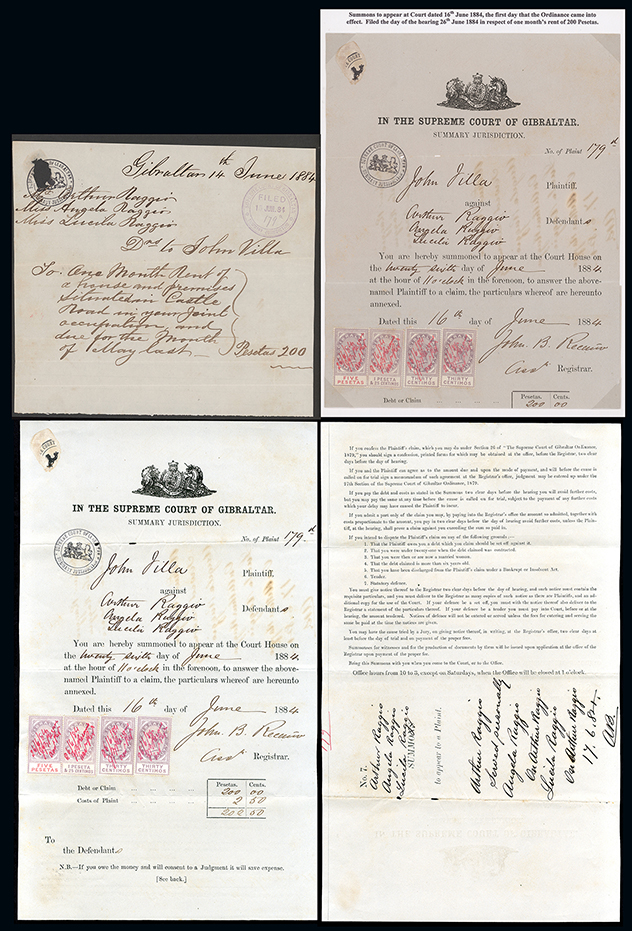 Summons to appear at Court dated 16th June 1884, the first day that the Ordinance came into
effect. Filed the day of the hearing 26th June 1884 in respect of one month's rent of 200 Pesetas.
IN THE SUPREME COURT OF GIBRALTAR.
SUMMARY JURISDICTION.
No. of Plaint 179
John Villa
Plaintiff,
against
Arthur Raggio
Angela Raggio
Lucila Raggio
Defendants
You are hereby summoned to appear at the Court House on
the twenty sixth day of June 1884
at the hour of 11 o'clock in the forenoon, to answer the above-
named Plaintiff to a claim, the particulars whereof are hereunto
annexed.
Dated this 16th day of June 1884
John B.
Registrar.
FIVE PESETAS
1 PESETA & 25 CENTIMOS
THIRTY CENTIMOS
THIRTY CENTIMOS
Pesetas. Cents.
Debt or Claim 200 00
Gibraltar 14th June 1884
FILED
Arthur Raggio
Miss Angela Raggio
Miss Lucila Raggio
Drs to John Villa
To: One Month Rent of
a house and premises
situated in Castle
Road in your joint
occupation, and
due for the Month
of May last
Pesetas 200
IN THE SUPREME COURT OF GIBRALTAR.
SUMMARY JURISDICTION.
No. of Plaint 179
John Villa
Plaintiff,
against
Arthur Raggio
Angela Raggio
Lucila Raggio
Defendants
You are hereby summoned to appear at the Court House on
the twenty sixth day of June 1884
at the hour of 11 o'clock in the forenoon, to answer the above-
named Plaintiff to a claim, the particulars whereof are hereunto
annexed.
Dated this 16th day of June 1884
John B.
Registrar.
FIVE PESETAS
1 PESETA & 25 CENTIMOS
THIRTY CENTIMOS
THIRTY CENTIMOS
Pesetas. Cents.
Debt or Claim 200 00
Costs of Plaint 2 50
202 50
To
the Defendants
N.B.—If you owe the money and will consent to a Judgment it will save expense.
[See back.]
If you confess the Plaintiff's claim, which you may do under Section 26 of "The Supreme Court of Gibraltar Ordinance,
1879," you should sign a confession, printed forms for which may be obtained at the office, before the Registrar, two clear
days before the day of hearing.
If you and the Plaintiff can agree as to the amount due and upon the mode of payment, and will before the cause is
called on for trial sign a memorandum of such agreement at the Registrar's office, judgment may be entered up under the
Section of the Supreme Court of Gibraltar Ordinance, 1879.
If you pay the debt and costs as stated in the Summons two clear days before the hearing you will avoid further costs,
but you may pay the same at any time before the cause is called on for trial, subject to the payment of any further costs
which your delay may have caused the Plaintiff to incur.
If you admit a part only of the claim you may, by paying into the Registrar's office the amount so admitted, together with
costs proportionate to the amount, you pay in two clear days before the day of hearing avoid further costs, unless the Plain-
tiff, at the hearing, shall prove a claim against you exceeding the sum so paid in.
If you intend to dispute the Plaintiff's claim on any of the following grounds:—
1. That the Plaintiff owes you a debt which you claim should be set off against it.
2. That you were under twenty-one when the debt claimed was contracted.
3. That you were then or are now a married woman.
4. That the debt claimed is more than six years old.
5. That you have been discharged from the Plaintiff's claim under a Bankrupt or Insolvent Act.
6. Tender.
7. Statutory defence.
You must give notice thereof to the Registrar two clear days before the day of hearing, and such notice must contain the
requisite particulars, and you must deliver to the Registrar as many copies of such notice as there are Plaintiffs, and an ad-
ditional copy for the use of the Court. If your defence be a set off, you must with the notice thereof also deliver to the
Registrar a statement of the particulars thereof. If your defence be a tender you must pay into Court, before or at the
hearing, the amount tendered. Notices of defence will not be entered or served unless the fees for entering and serving the
same be paid at the time the notices are given.
You may have the cause tried by a Jury, on giving notice thereof, in writing, at the Registrar's office, two clear days at
least before the day of trial and on payment of the proper fees.
Summonses for witnesses and for the production of documents by them will be issued upon application at the office of the
Registrar upon payment of the proper fee.
Bring this Summons with you when you come to the Court, or to the Office.
Office hours from 10 to 3, except on Saturdays, when the Office will be closed at 1 o'clock.
No. 7.
Arthur Raggio
Angela Raggio
Lucila Raggio
SUMMONS
to appear to a Plaint.
Arthur Raggio
Served personally
Angela Raggio
On Arthur Raggio
Lucila Raggio
On Arthur Raggio
17.6.84